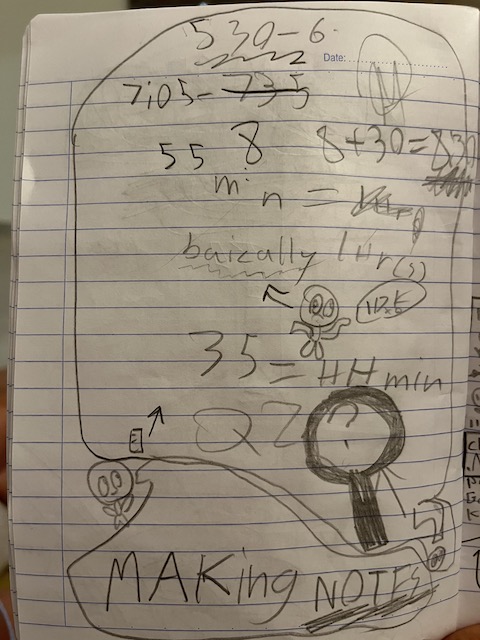 530-6
Date:
7:05- 735
55 8 8+30=830
min =
baizally 1Hr(s)
IDK
35= HH min
Q2 ?
MAKing NOTES